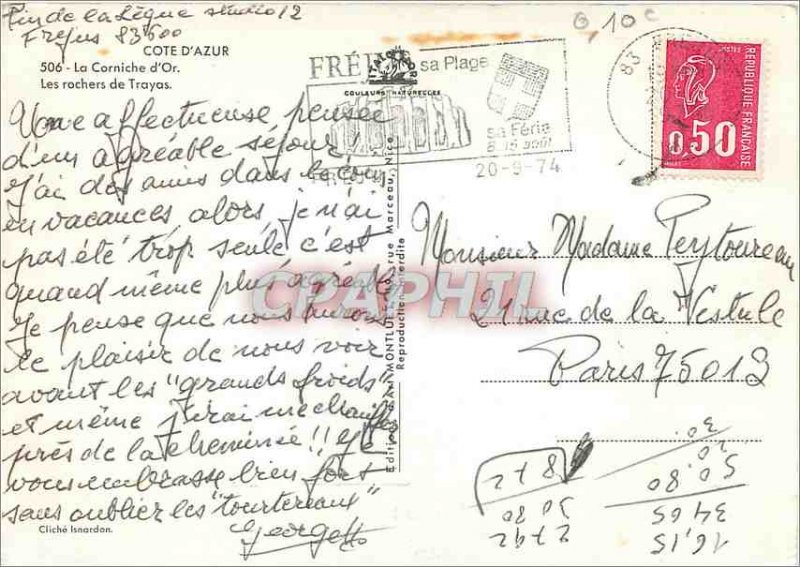 Pin de la Lègue studio 12
Fréjus 83600
0,10 c
COTE D'AZUR
506 - La Corniche d'Or.
Les rochers de Trayas.
FRÉJUS sa Plage
COULEURS NATURELLES
sa Féria
8-15 août
20-9-74
83
POSTES
REPUBLIQUE FRANÇAISE
0,50
Une affectueuse pensée
d'un agréable séjour,
j'ai des amis dans le coin
en vacances alors je n'ai
pas été trop seule c'est
quand même plus agréable
Je pense que nous aurons
le plaisir de nous voir
avant les "grands froids"
et même j'irai me chauffer
près de la cheminée !! Je
vous embrasse bien fort
sans oublier les "tourtereaux"
Georgette
Cliché Isnardon.
MONTLUET rue Marceau, Nice
Reproduction interdite
CPAPHIL
Monsieur Madame Peytoureau
21 rue de la Vistule
Paris 75013
872
30 80
2792
30.
20.
50.80
3465
16,15